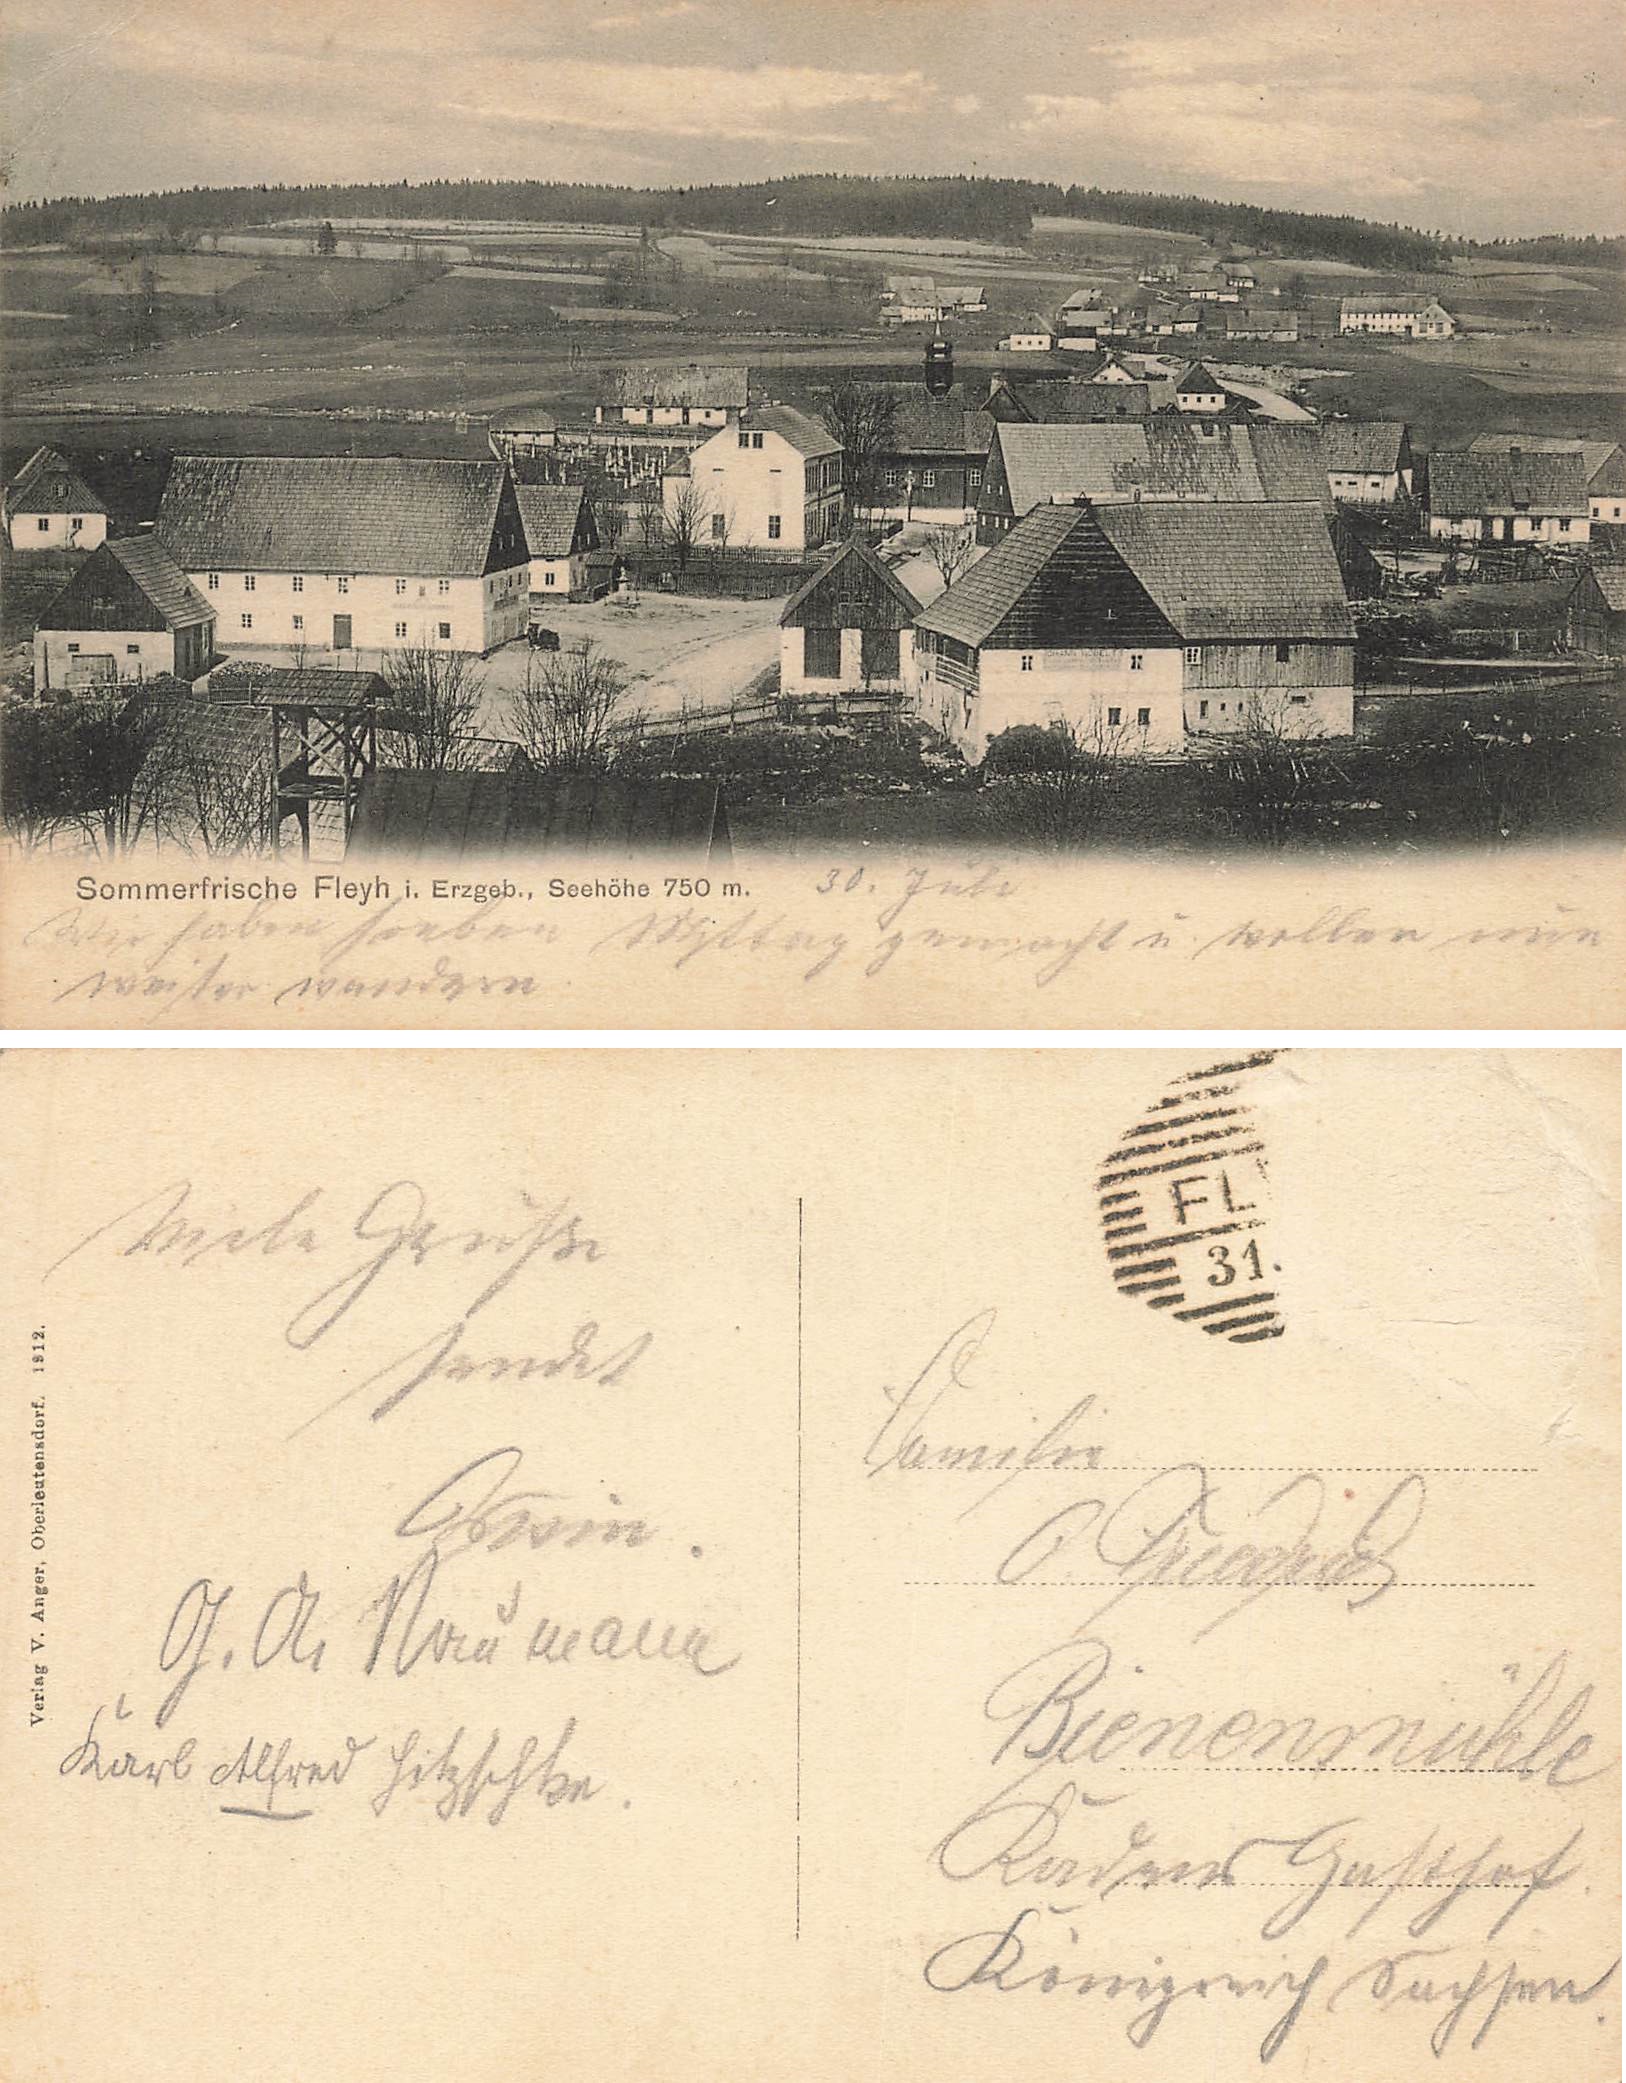 JOHANN NOBEL
Sommerfrische Fleyh i. Erzgeb., Seehöhe 750 m.
30. Juli
Wir haben soeben Mittag gemacht u. wollen nun
weiter wandern
FL
31.
Viele Grüße
sendet
Oswin.
G. A. Naumann
Karl Alfred Hitzschke.
Verlag V. Anger, Oberleutensdorf. 1912.
Familie
O. Friedrich
Bienenmühle
Kadens Gasthof.
Königreich Sachsen.